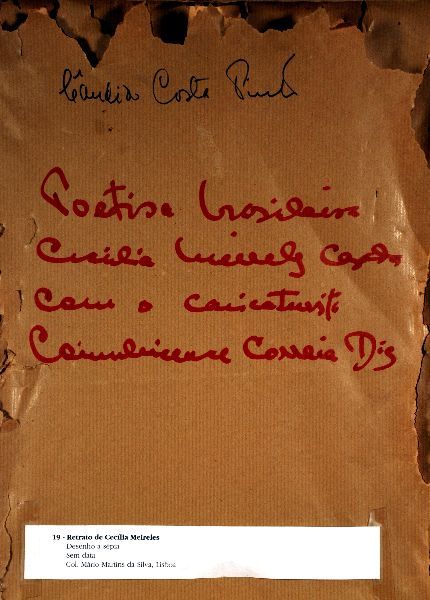 Cândido Costa Pinto
Poetisa brasileira
Cecília Meireles casada
com o caricaturista
Coimbricense Correia Dias
19 - Retrato de Cecília Meireles
Desenho a sépia
Sem data
Col. Mário Martins da Silva, Lisboa